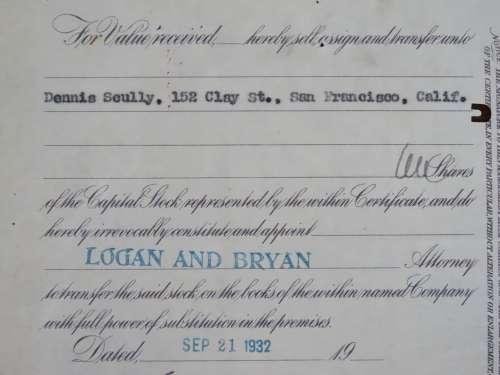 For Value received, hereby sell, assign and transfer unto
Dennis Scully, 152 Clay St., San Francisco, Calif.
Shares
of the Capital Stock represented by the within Certificate, and do
hereby irrevocably constitute and appoint
LOGAN AND BRYAN Attorney
to transfer the said stock, on the books of the within named Company
with full power of substitution in the premises.
Dated, SEP 21 1932 19
OF THE CERTIFICATE, IN EVERY PARTICULAR, WITHOUT ALTERATION OR ENLARGEMENT,